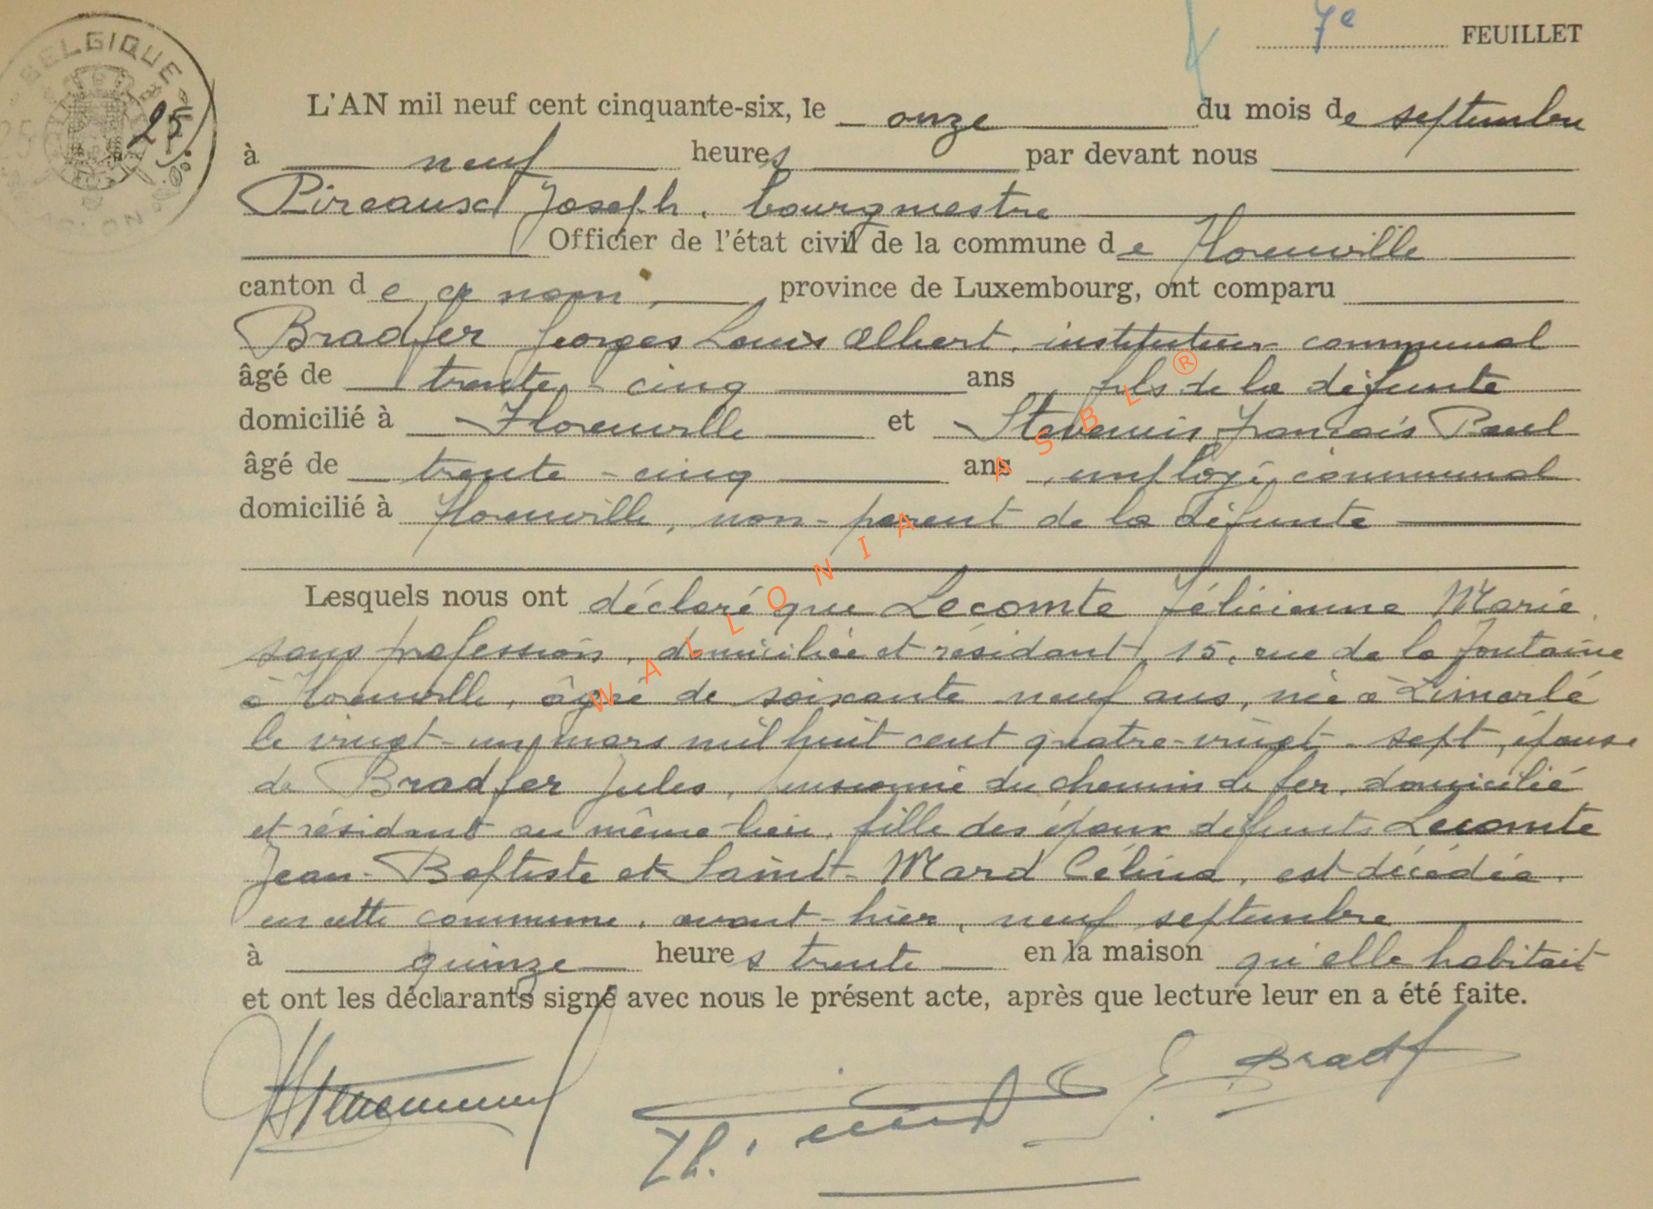 7e FEUILLET
BELGIQUE
25
L'AN mil neuf cent cinquante-six, le onze du mois de septembre
à neuf heures par devant nous
Pireaux Joseph, bourgmestre
Officier de l'état civil de la commune de Florenville
canton de ce nom, province de Luxembourg, ont comparu
Bradfer Georges Louis Albert, instituteur communal
âgé de trente-cinq ans, fils de la défunte
domicilié à Florenville et Stevenin François Paul
âgé de trente-cinq ans, employé communal
domicilié à Florenville, non-parent de la défunte
Lesquels nous ont déclaré que Lecomte Félicienne Marie,
sans profession, domiciliée et résidant 15, rue de la Fontaine
à Florenville, âgée de soixante neuf ans, née à Limerlé
le vingt-un mars mil huit cent quatre-vingt-sept, épouse
de Bradfer Jules, pensionné du chemin de fer, domicilié
et résidant au même lieu, fille des époux défunts Lecomte
Jean-Baptiste et Saint-Mard Célina, est décédée,
en cette commune, avant-hier, neuf septembre
à quinze heures trente en la maison qu'elle habitait
et ont les déclarants signé avec nous le présent acte, après que lecture leur en a été faite.
G. Bradf
WALLONIA ASBL ®